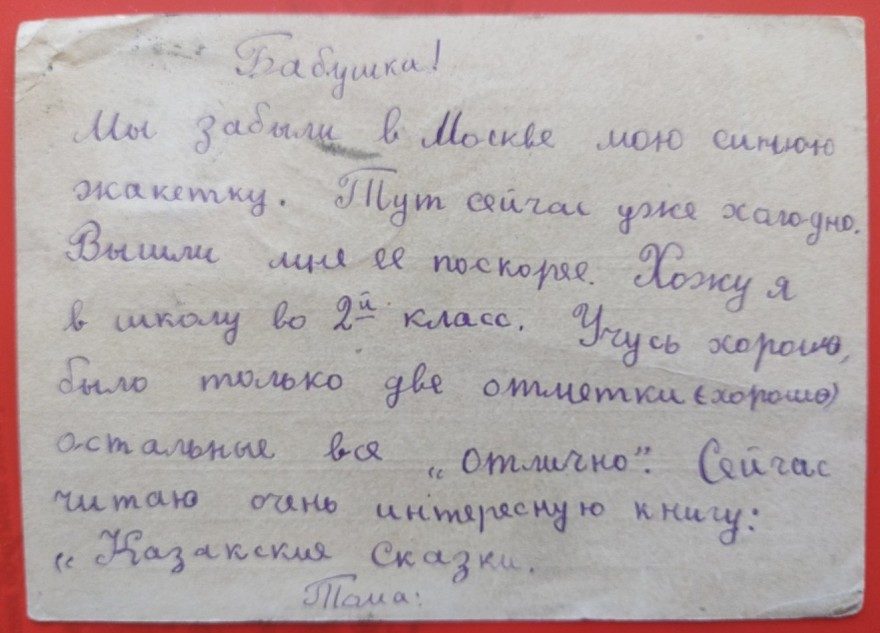 Бабушка!
Мы забыли в Москве мою синюю
жакетку. Тут сейчас уже халодно.
Вышли мне ее поскорее. Хожу я
в школу во 2й класс. Учусь хорошо,
было только две отметки (хорошо)
остальные все „отлично". Сейчас
читаю очень интересную книгу:
„Казакские Сказки.
Тома.